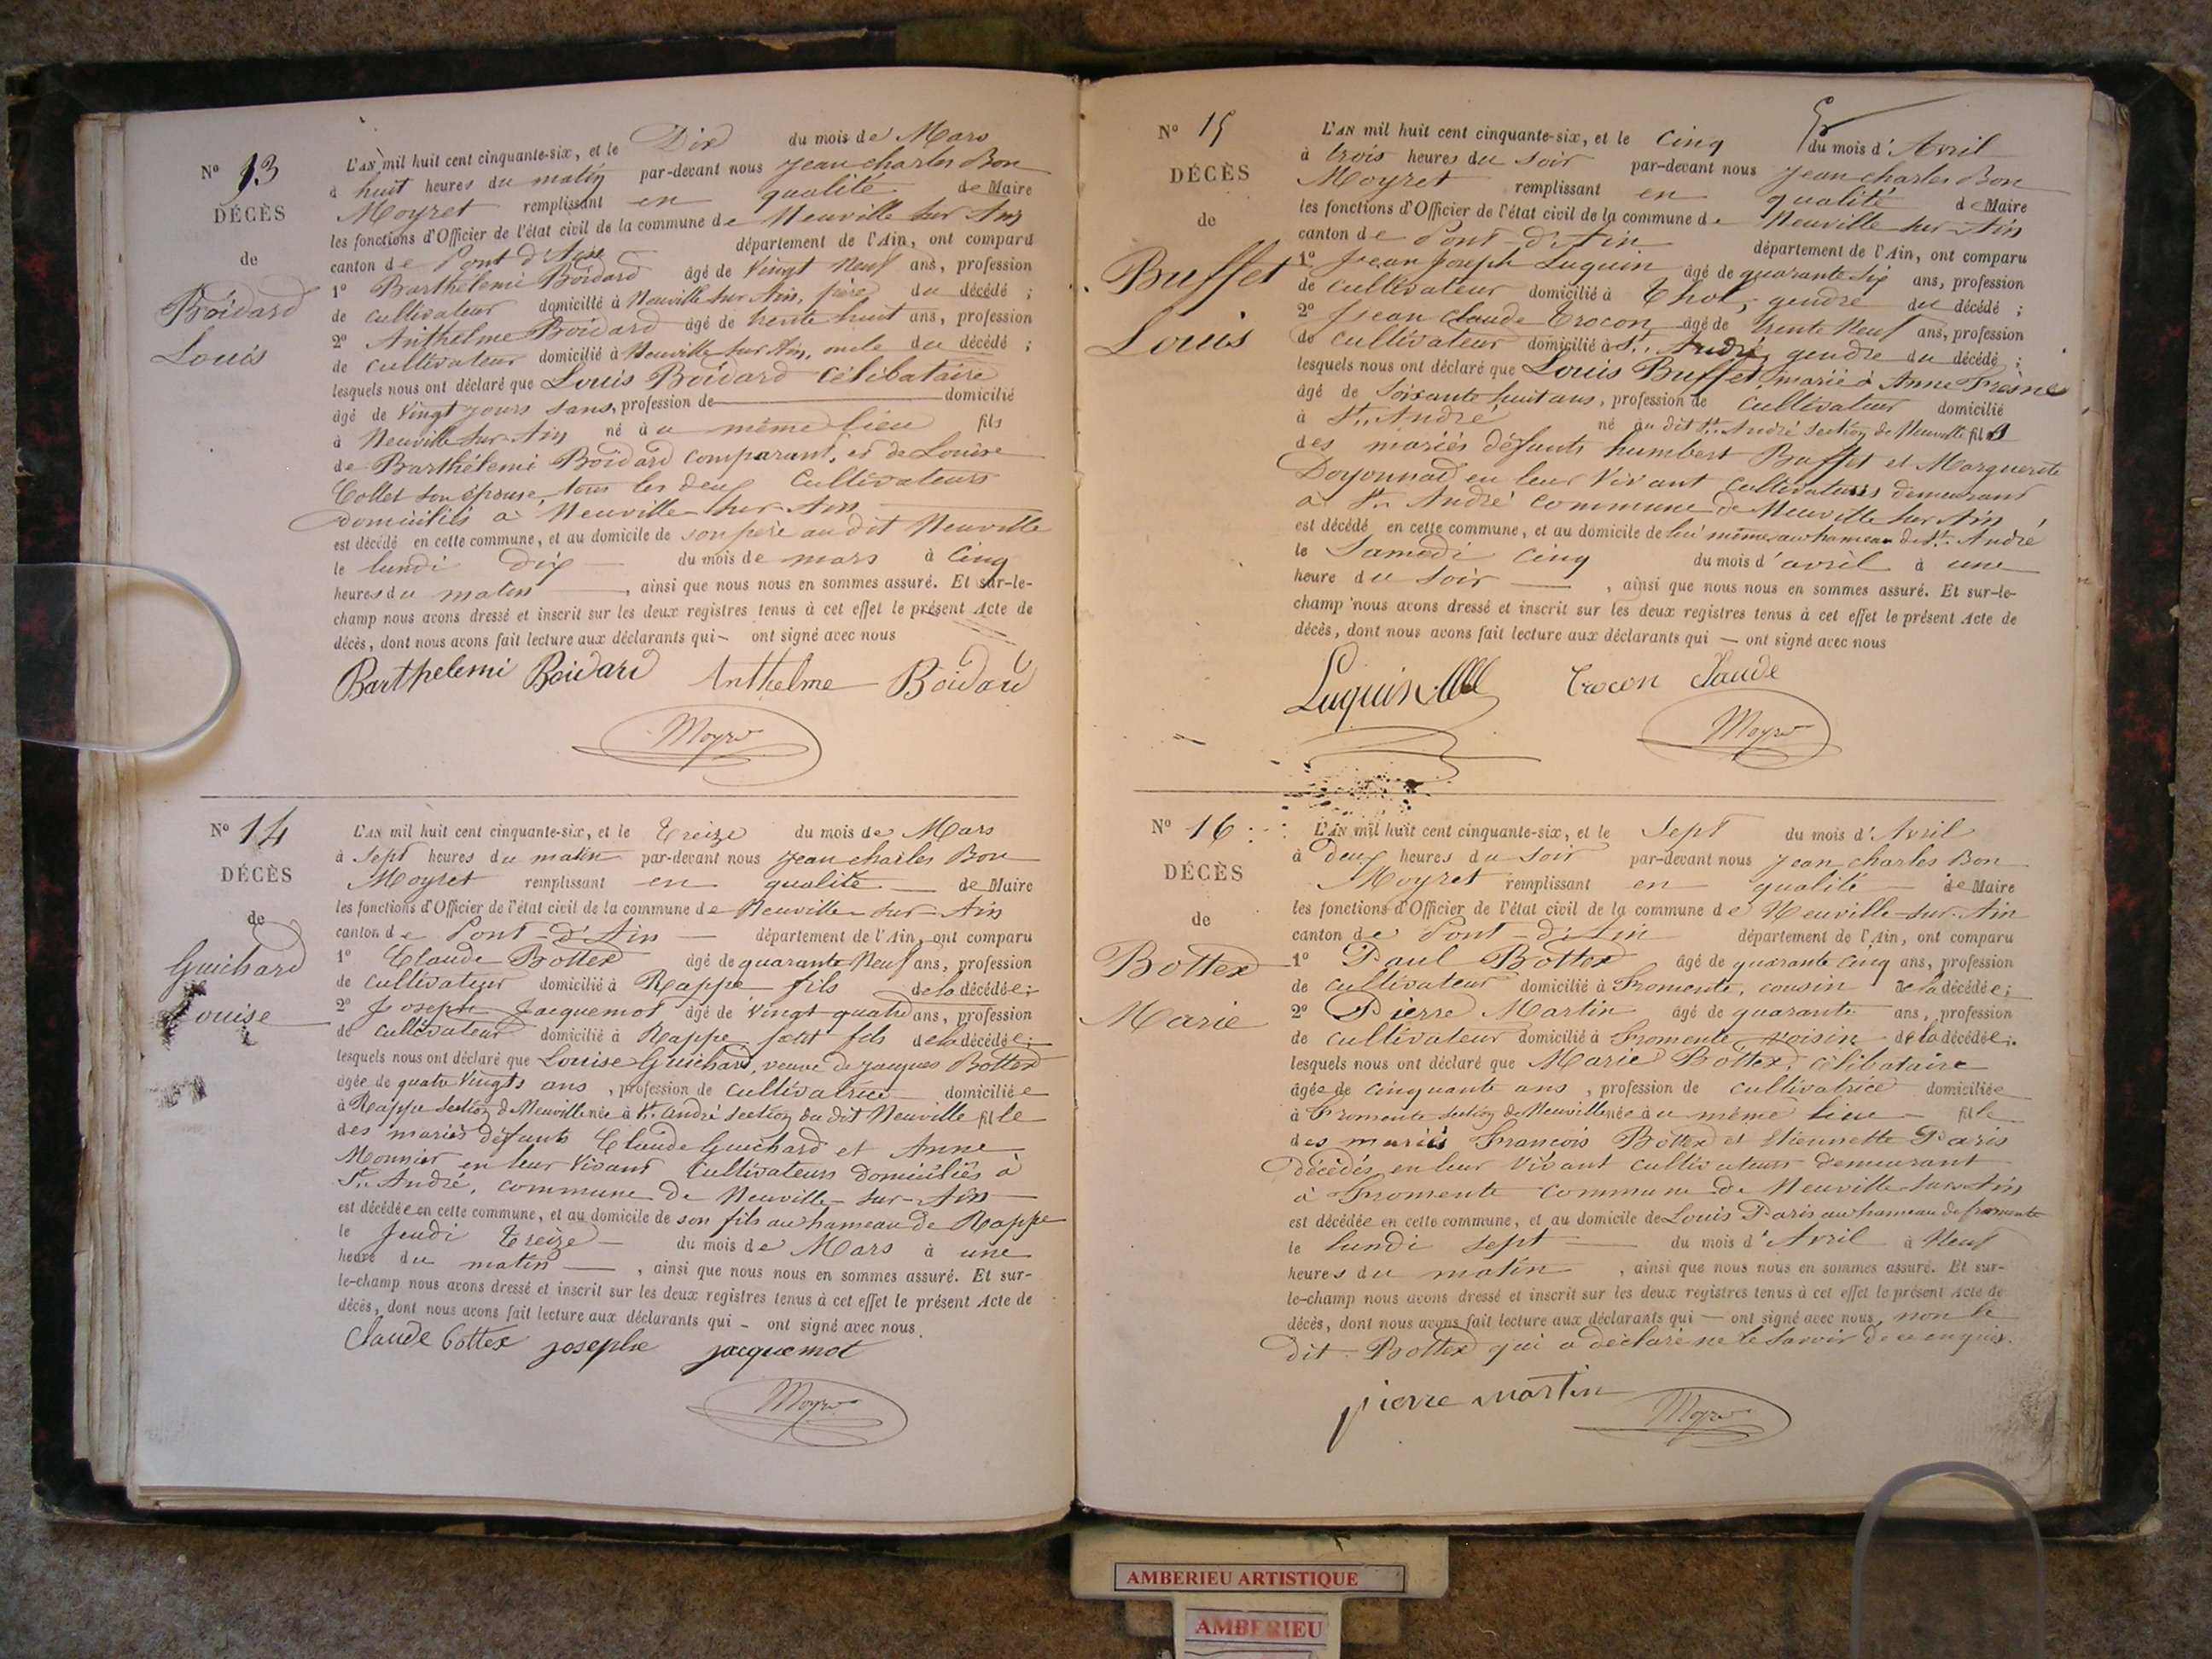 Nº 13
DÉCÈS
de
Boidard
Louis
L'AN mil huit cent cinquante-six, et le Dix du mois de Mars
à huit heures du matin par-devant nous Jean charles Bon
Moyret remplissant en qualité de Maire
les fonctions d'Officier de l'état civil de la commune de Neuville sur Ain
canton de Pont d'Ain département de l'Ain, ont comparu
1º Barthélemi Boidard âgé de Vingt Neuf ans, profession
de cultivateur domicilié à Neuville sur Ain, père du décédé ;
2º Anthelme Boidard âgé de trente huit ans, profession
de cultivateur domicilié à Neuville sur Ain, oncle du décédé ;
lesquels nous ont déclaré que Louis Boidard Célibataire
âgé de Vingt jours sans, profession de domicilié
à Neuville sur Ain né au même lieu fils
de Barthélemi Boidard comparant, et de Louise
Collet son épouse, tous les deux Cultivateurs
domiciliés à Neuville sur Ain
est décédé en cette commune, et au domicile de son père au dit Neuville
le lundi dix du mois de mars à Cinq
heures du matin , ainsi que nous nous en sommes assuré. Et sur-le-
champ nous avons dressé et inscrit sur les deux registres tenus à cet effet le présent Acte de
décès, dont nous avons fait lecture aux déclarants qui ont signé avec nous
Barthelemi Boidard Anthelme Boidard
Moyret
Nº 14
DÉCÈS
de
Guichard
Louise
L'AN mil huit cent cinquante-six, et le Treize du mois de Mars
à Sept heures du matin par-devant nous Jean charles Bon
Moyret remplissant en qualité de Maire
les fonctions d'Officier de l'état civil de la commune de Neuville-sur-Ain
canton de Pont-d'Ain département de l'Ain, ont comparu
1º Claude Bottex âgé de quarante Neuf ans, profession
de cultivateur domicilié à Rappe fils de la décédée ;
2º Joseph Jacquemot âgé de Vingt quatre ans, profession
de cultivateur domicilié à Rappe petit fils de la décédée ;
lesquels nous ont déclaré que Louise Guichard, veuve de Jacques Bottex
âgée de quatre Vingts ans , profession de Cultivatrice domiciliée
à Rappe section de Neuville née à St. André section du dit Neuville fille
des mariés défunts Claude Guichard et Anne
Monnier en leur Vivant Cultivateurs domiciliés à
St. André, commune de Neuville-sur-Ain
est décédée en cette commune, et au domicile de son fils au hameau de Rappe
le Jeudi Treize du mois de Mars à une
heure du matin , ainsi que nous nous en sommes assuré. Et sur-
le-champ nous avons dressé et inscrit sur les deux registres tenus à cet effet le présent Acte de
décès, dont nous avons fait lecture aux déclarants qui ont signé avec nous.
Claude bottex josephe jacquemot
Moyret
Nº 15
DÉCÈS
de
Buffet
Louis
L'AN mil huit cent cinquante-six, et le Cinq du mois d'Avril
à trois heures du soir par-devant nous Jean charles Bon
Moyret remplissant en qualité de Maire
les fonctions d'Officier de l'état civil de la commune de Neuville sur-Ain
canton de Pont-d'Ain département de l'Ain, ont comparu
1º Jean Joseph Luquin âgé de quarante six ans, profession
de cultivateur domicilié à Thol, gendre du décédé ;
2º Jean Claude Trocon âgé de trente Neuf ans, profession
de cultivateur domicilié à St. André, gendre du décédé ;
lesquels nous ont déclaré que Louis Buffet, marié à Anne Fresne
âgé de soixante huit ans, profession de cultivateur domicilié
à St. André né au dit St. André section de Neuville fils
des mariés défunts humbert Buffet et Marguerite
Doyonnad en leur Vivant cultivateurs demeurant
à St. André commune de Neuville sur Ain
est décédé en cette commune, et au domicile de lui même au hameau de St. André
le Samedi Cinq du mois d'avril à une
heure du soir , ainsi que nous nous en sommes assuré. Et sur-le-
champ nous avons dressé et inscrit sur les deux registres tenus à cet effet le présent Acte de
décès, dont nous avons fait lecture aux déclarants qui ont signé avec nous
Luquin Trocon Claude
Moyret
Nº 16
DÉCÈS
de
Bottex
Marie
L'AN mil huit cent cinquante-six, et le Sept du mois d'Avril
à Deux heures du soir par-devant nous Jean charles Bon
Moyret remplissant en qualité de Maire
les fonctions d'Officier de l'état civil de la commune de Neuville-sur-Ain
canton de Pont-d'Ain département de l'Ain, ont comparu
1º Paul Bottex âgé de quarante cinq ans, profession
de cultivateur domicilié à Fromente, cousin de la décédée ;
2º Pierre Martin âgé de quarante ans, profession
de cultivateur domicilié à Fromente voisin de la décédée ;
lesquels nous ont déclaré que Marie Bottex, célibataire
âgée de cinquante ans , profession de cultivatrice domiciliée
à Fromente section de Neuville née au même lieu fille
des mariés François Bottex et Etiennette Paris
décédés en leur Vivant cultivateurs demeurant
à Fromente commune de Neuville sur Ain
est décédée en cette commune, et au domicile de Louis Paris au hameau de fromente
le lundi sept du mois d'Avril à Neuf
heures du matin , ainsi que nous nous en sommes assuré. Et sur-
le-champ nous avons dressé et inscrit sur les deux registres tenus à cet effet le présent Acte de
décès, dont nous avons fait lecture aux déclarants qui ont signé avec nous, non le
dit Bottex qui a déclaré ne le savoir de ce enquis.
pierre martin
Moyret
AMBERIEU ARTISTIQUE
AMBERIEU